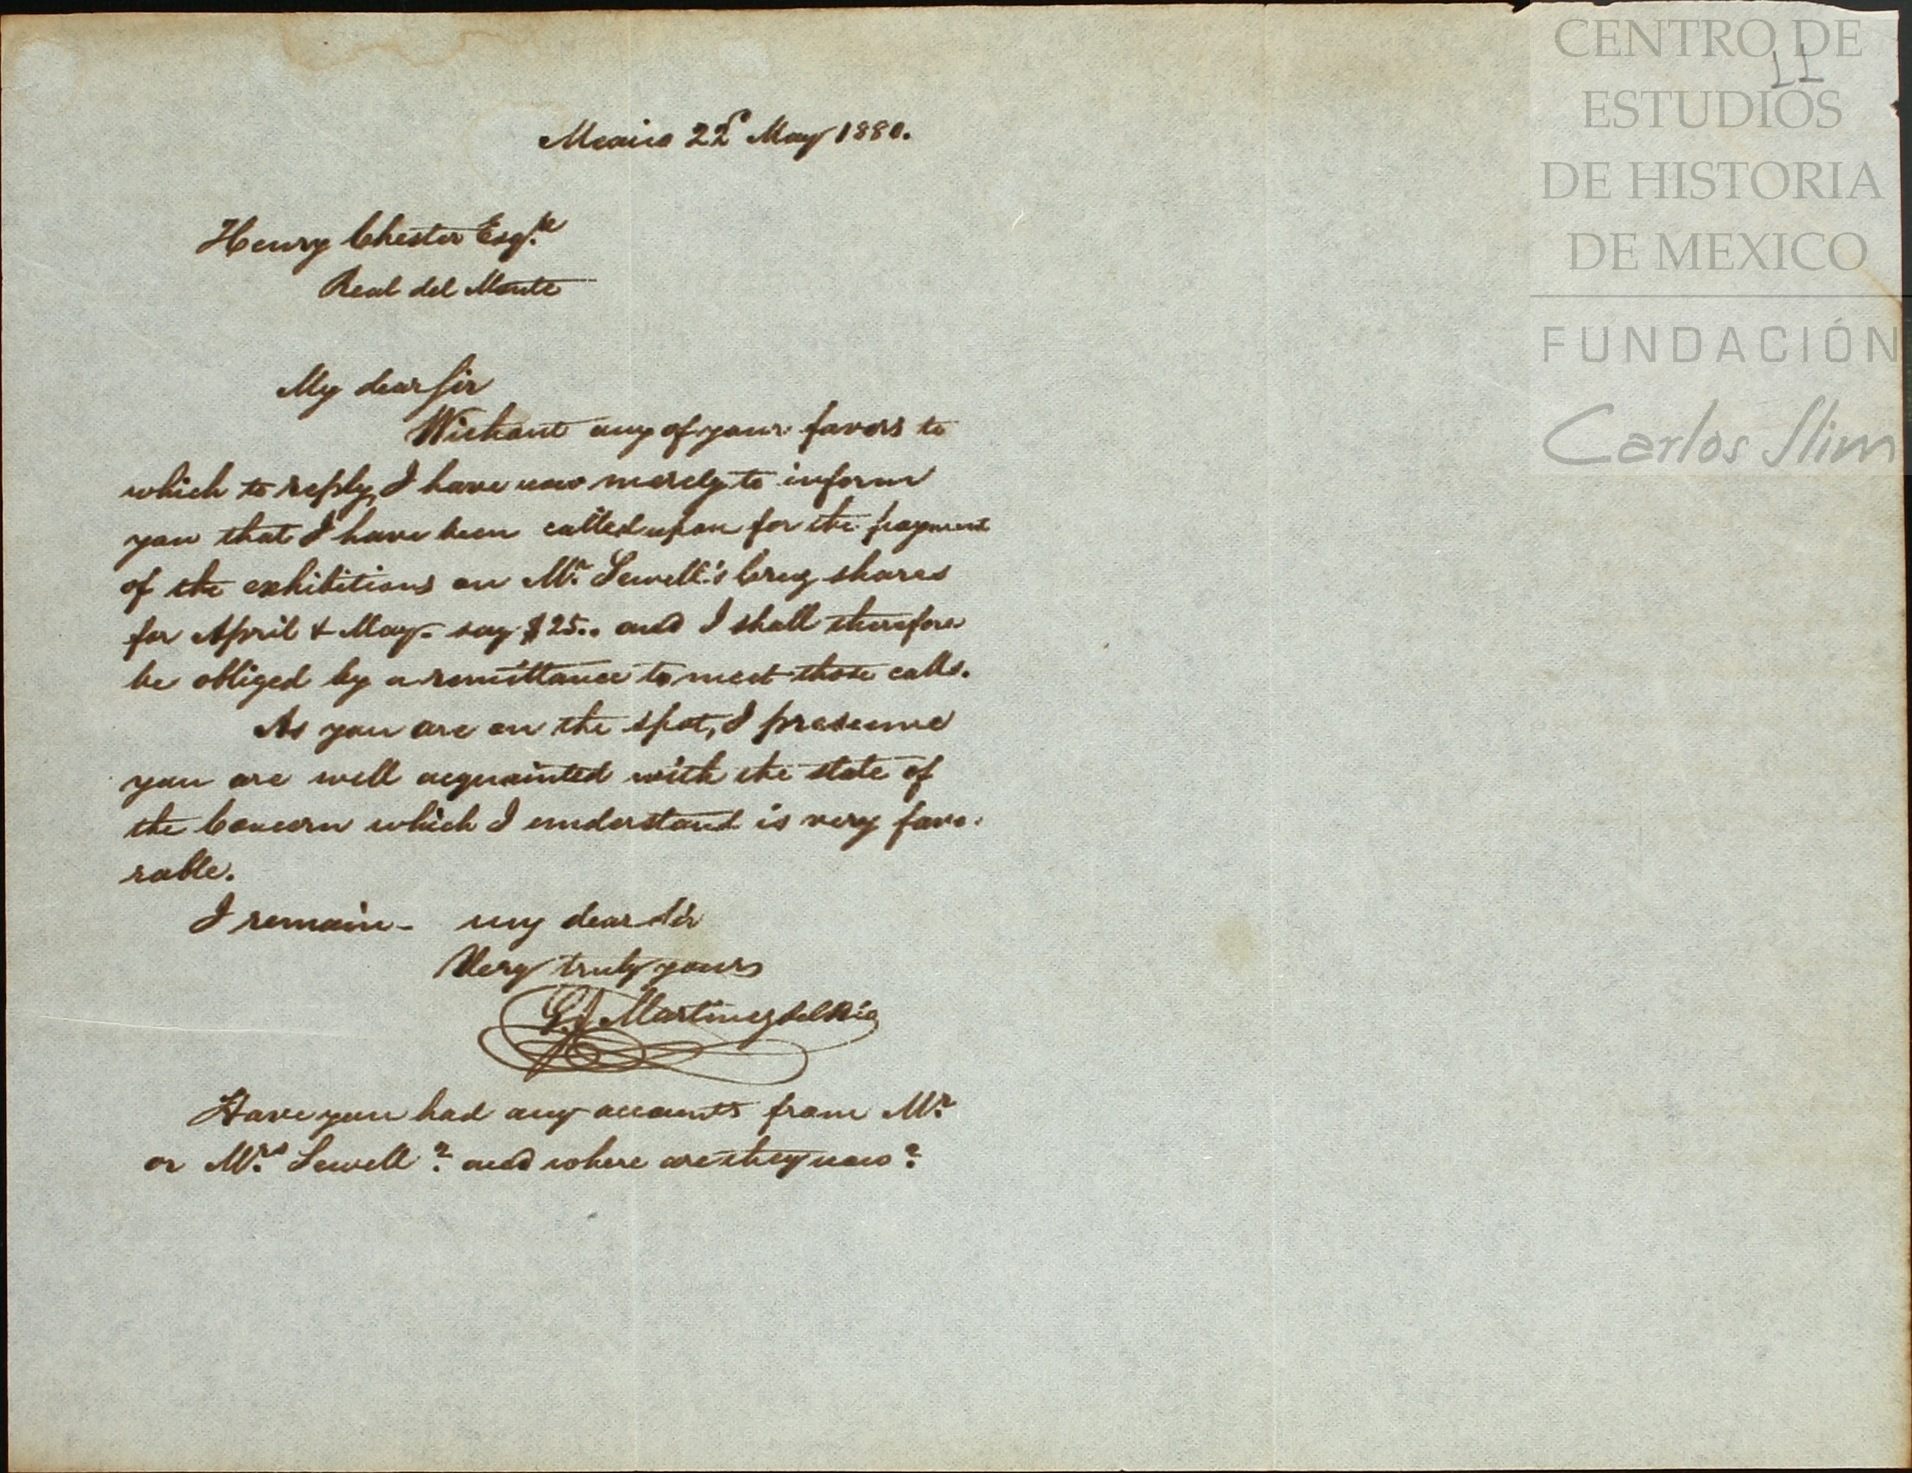 CENTRO DE
ESTUDIOS
DE HISTORIA
DE MEXICO
FUNDACIÓN
Carlos Slim
11
Mexico 22d May 1880.
Henry Chester Esqre
Real del Monte
My dear Sir
Without any of your favors to
which to reply, I have now merely to inform
you that I have been called upon for the payment
of the exhibitions on Mr. Sewell's Cruz shares
for April & May - say $25.. and I shall therefore
be obliged by a remittance to meet those calls.
As you are on the spot, I presume
you are well acquainted with the state of
the Concern which I understand is very favo-
rable.
I remain - my dear Sir
Very truly yours
Martinez del Rio
Have you had any accounts from Mr.
or Mrs. Sewell? and where are they now?